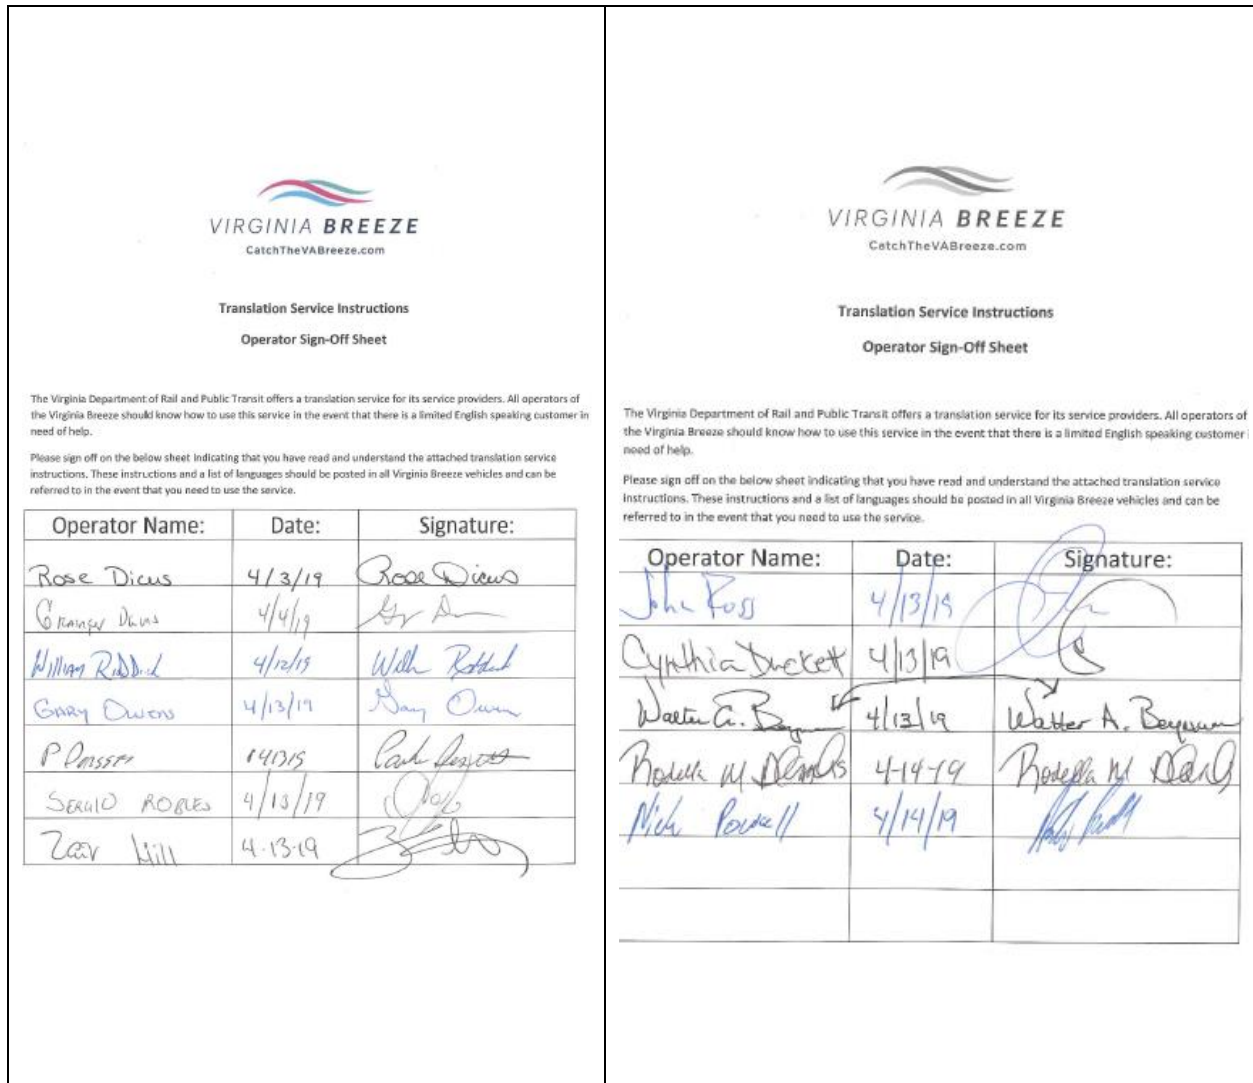 VIRGINIA BREEZE
CatchTheVABreeze.com
Translation Service Instructions
Operator Sign-Off Sheet
The Virginia Department of Rail and Public Transit offers a translation service for its service providers. All operators of
the Virginia Breeze should know how to use this service in the event that there is a limited English speaking customer in
need of help.
Please sign off on the below sheet indicating that you have read and understand the attached translation service
instructions. These instructions and a list of languages should be posted in all Virginia Breeze vehicles and can be
referred to in the event that you need to use the service.
Operator Name: Date: Signature:
Rose Dicus 4/3/19 Rose Dicus
4/4/19
William Riddick 4/12/19
Gary Owens 4/13/19 Gary Owen
P
SERGIO ROBLES 4/13/19
Zair Hill 4-13-19
VIRGINIA BREEZE
CatchTheVABreeze.com
Translation Service Instructions
Operator Sign-Off Sheet
The Virginia Department of Rail and Public Transit offers a translation service for its service providers. All operators of
the Virginia Breeze should know how to use this service in the event that there is a limited English speaking customer
need of help.
Please sign off on the below sheet indicating that you have read and understand the attached translation service
instructions. These instructions and a list of languages should be posted in all Virginia Breeze vehicles and can be
referred to in the event that you need to use the service.
Operator Name: Date: Signature:
John Ross 4/13/19
Cynthia Duckett 4/13/19
Walter 4/13/19 Walter A.
M 4-14-19 M
Nick Powell 4/14/19